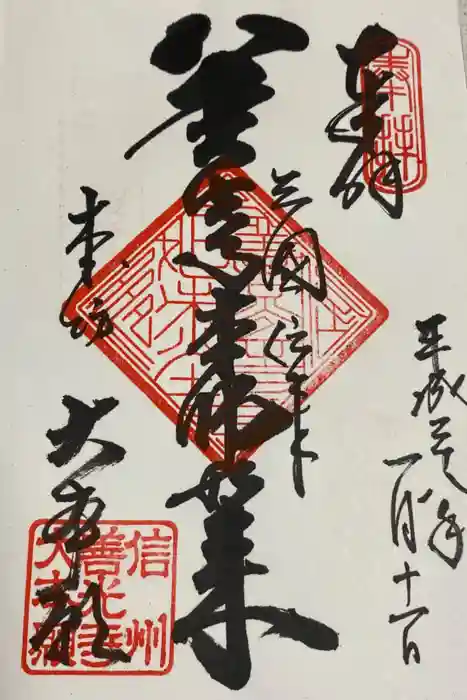 奉拝
奉拝
平成 年
一月十一日
三國伝来
善光寺本師如来
本坊
大本願
信州
善光寺
大本願